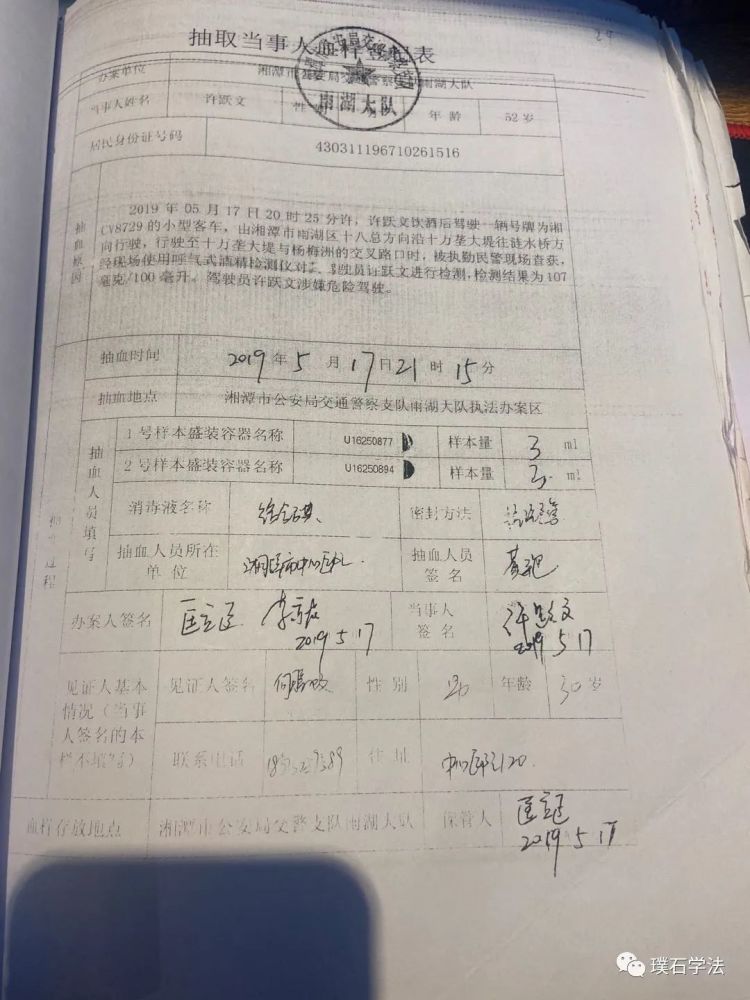 抽取当事人血样登记表
办案单位 湘潭市公安局交通警察支队雨湖大队
雨湖大队
当事人姓名 许跃文 性别 年龄 52岁
居民身份证号码 430311196710261516
抽血原因
2019年05月17日20时25分许，许跃文饮酒后驾驶一辆号牌为湘
CV8729的小型客车，由湘潭市雨湖区十八总方向沿十万垄大堤往涟水桥方
向行驶，行驶至十万垄大堤与杨梅洲的交叉路口时，被执勤民警现场查获，
经现场使用呼气式酒精检测仪对驾驶员许跃文进行检测，检测结果为107
毫克/100毫升。驾驶员许跃文涉嫌危险驾驶。
抽血时间 2019年5月17日21时15分
抽血地点 湘潭市公安局交通警察支队雨湖大队执法办案区
抽血人员填号
1号样本盛装容器名称 U16250877 样本量 3 ml
2号样本盛装容器名称 U16250894 样本量 3 ml
消毒液名称 密封方法
抽血人员所在单位 湘潭市中心医院 抽血人员签名
过程
办案人签名 2019 5 17 当事人签名 许跃文 2019 5 17
见证人基本情况（当事人签名的本栏不填写） 见证人签名 性别 年龄 30岁
联系电话 住址 中心医院120
血样存放地点 湘潭市公安局交警支队雨湖大队 保管人 2019 5 17
璞石学法